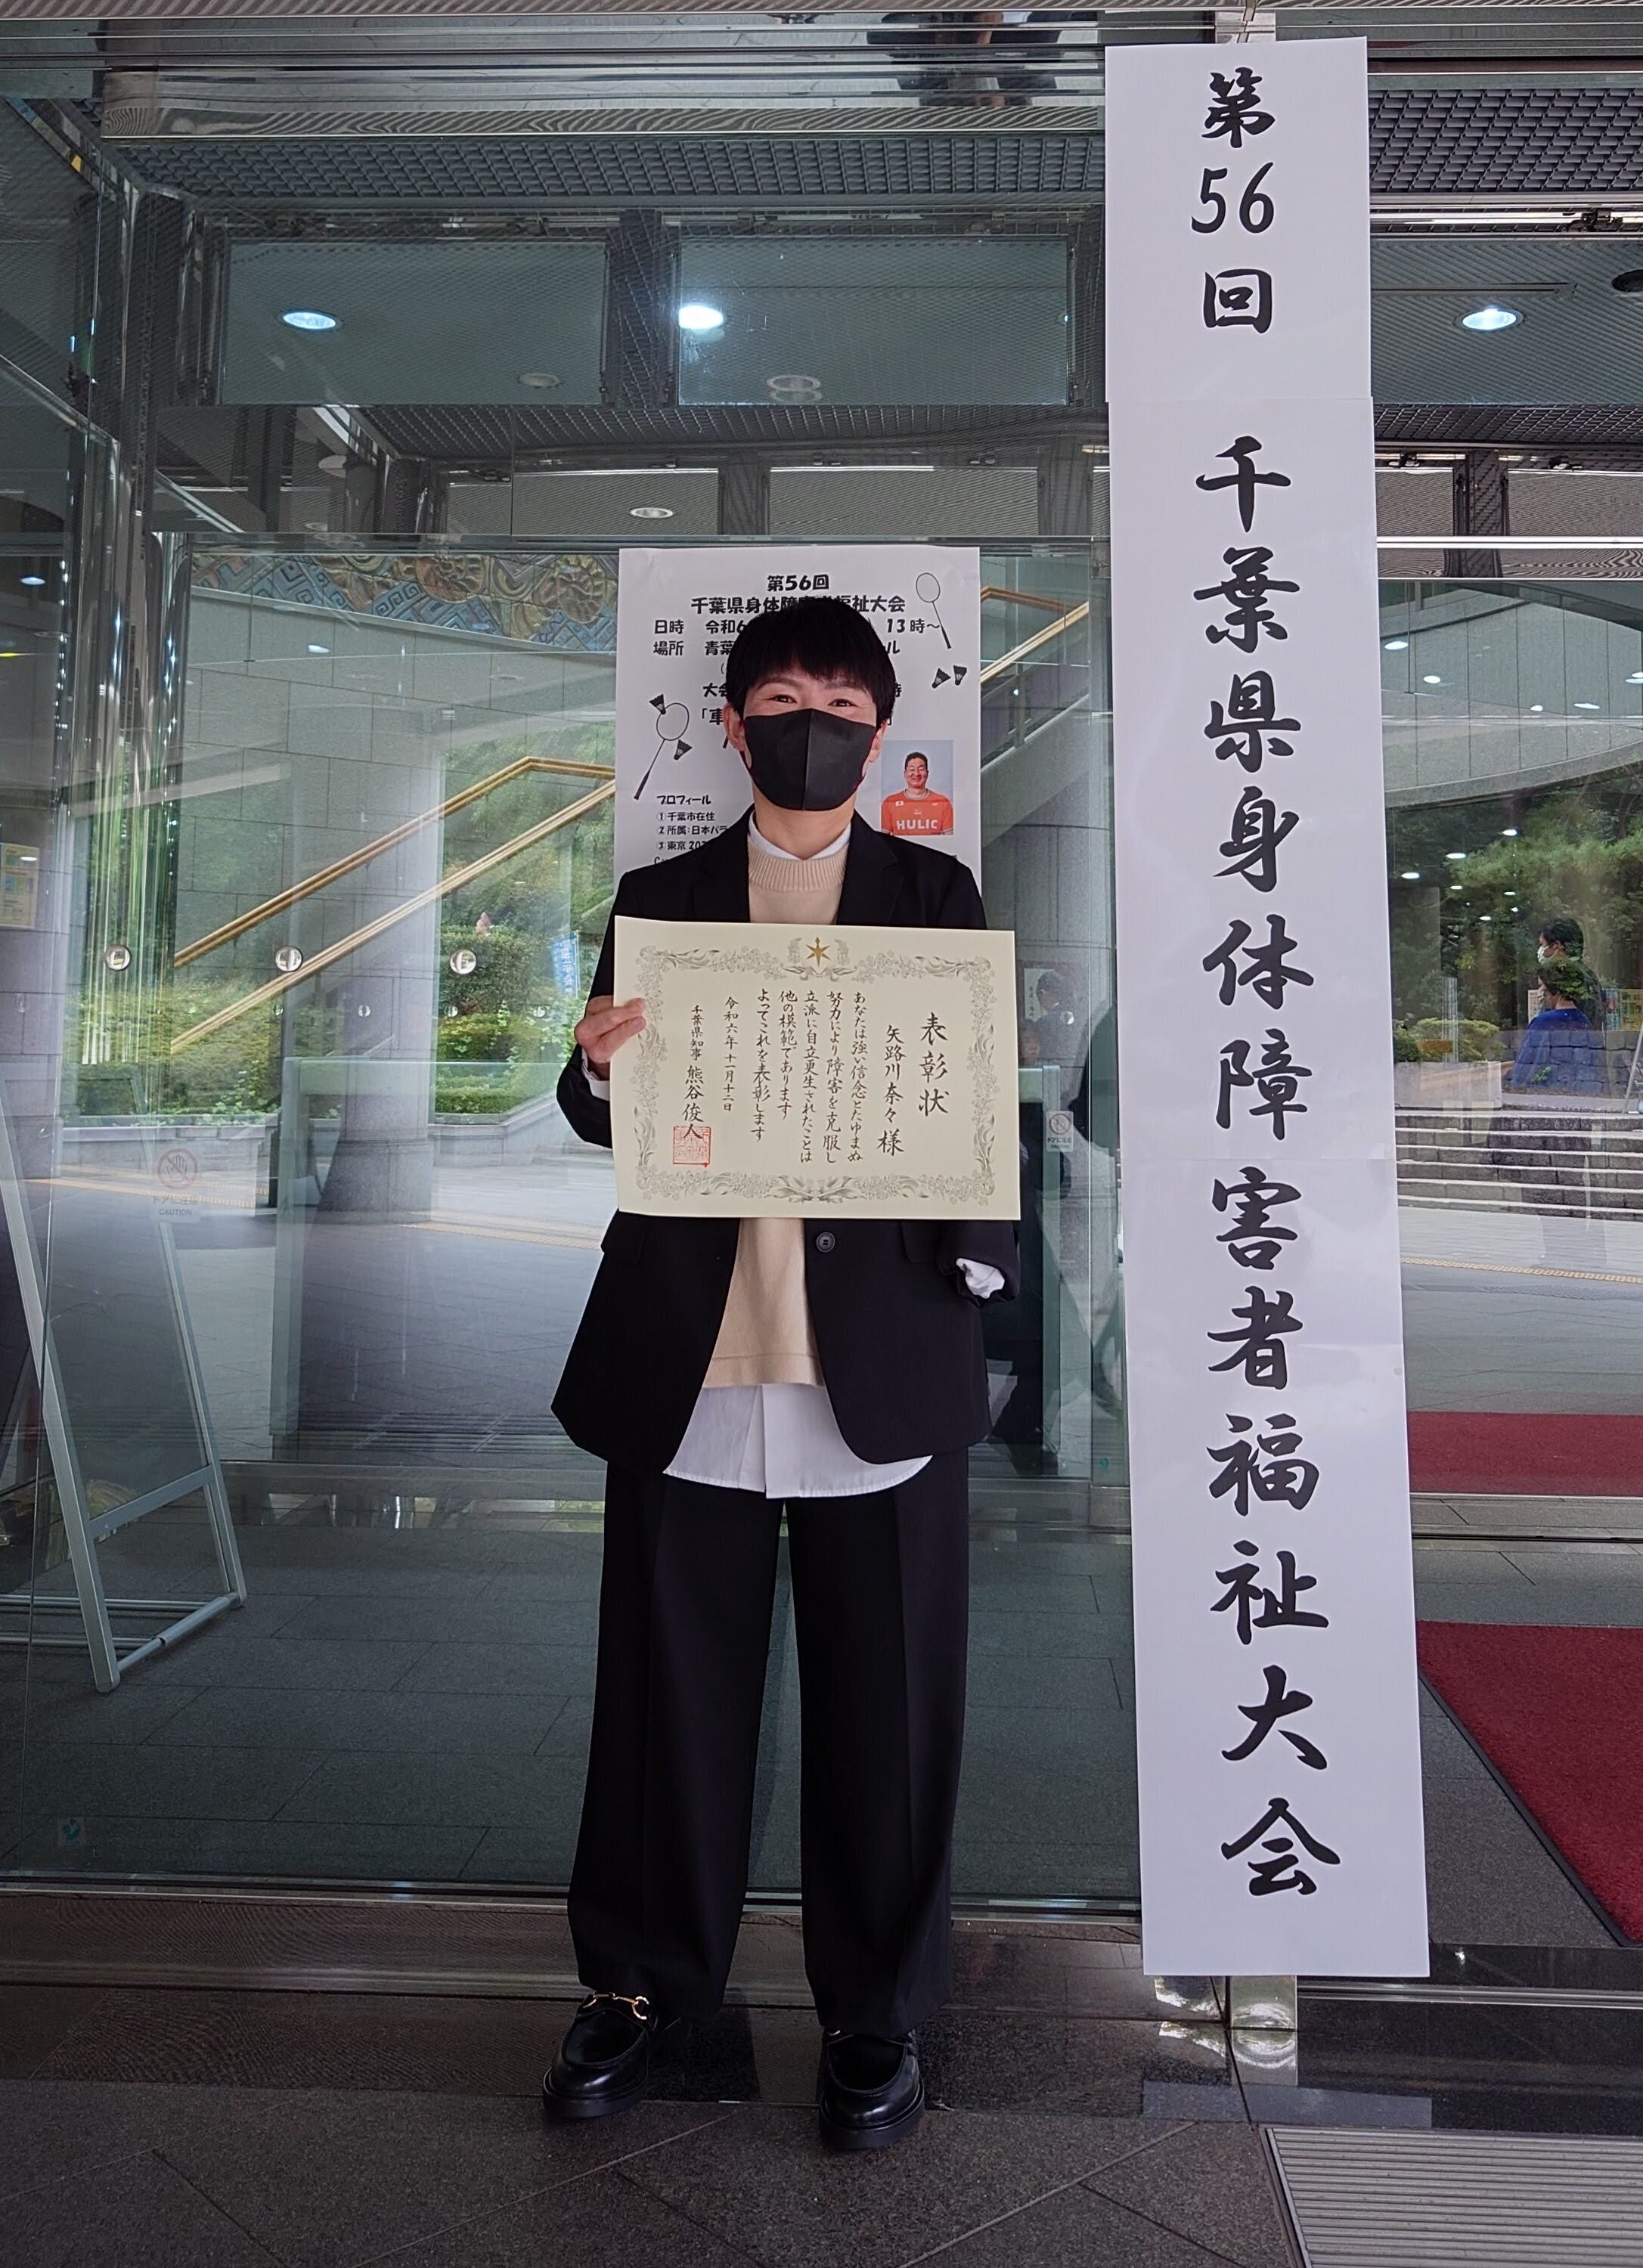 第56回 千葉県身体障害者福祉大会
第56回
千葉県身体障
福祉大会
日時 令和6
13時～
場所 青葉
ル
大会
時
「車
プロフィール
①千葉市在住
②所属:日本パラ
③東京 202
HULIC
表彰状
矢路川奈々 様
あなたは強い信念とたゆまぬ
努力により障害を克服し
立派に自立更生されたことは
他の模範であります
よってこれを表彰します
令和六年十一月十二日
千葉県知事 熊谷俊人
ドアに注意
CAUTION